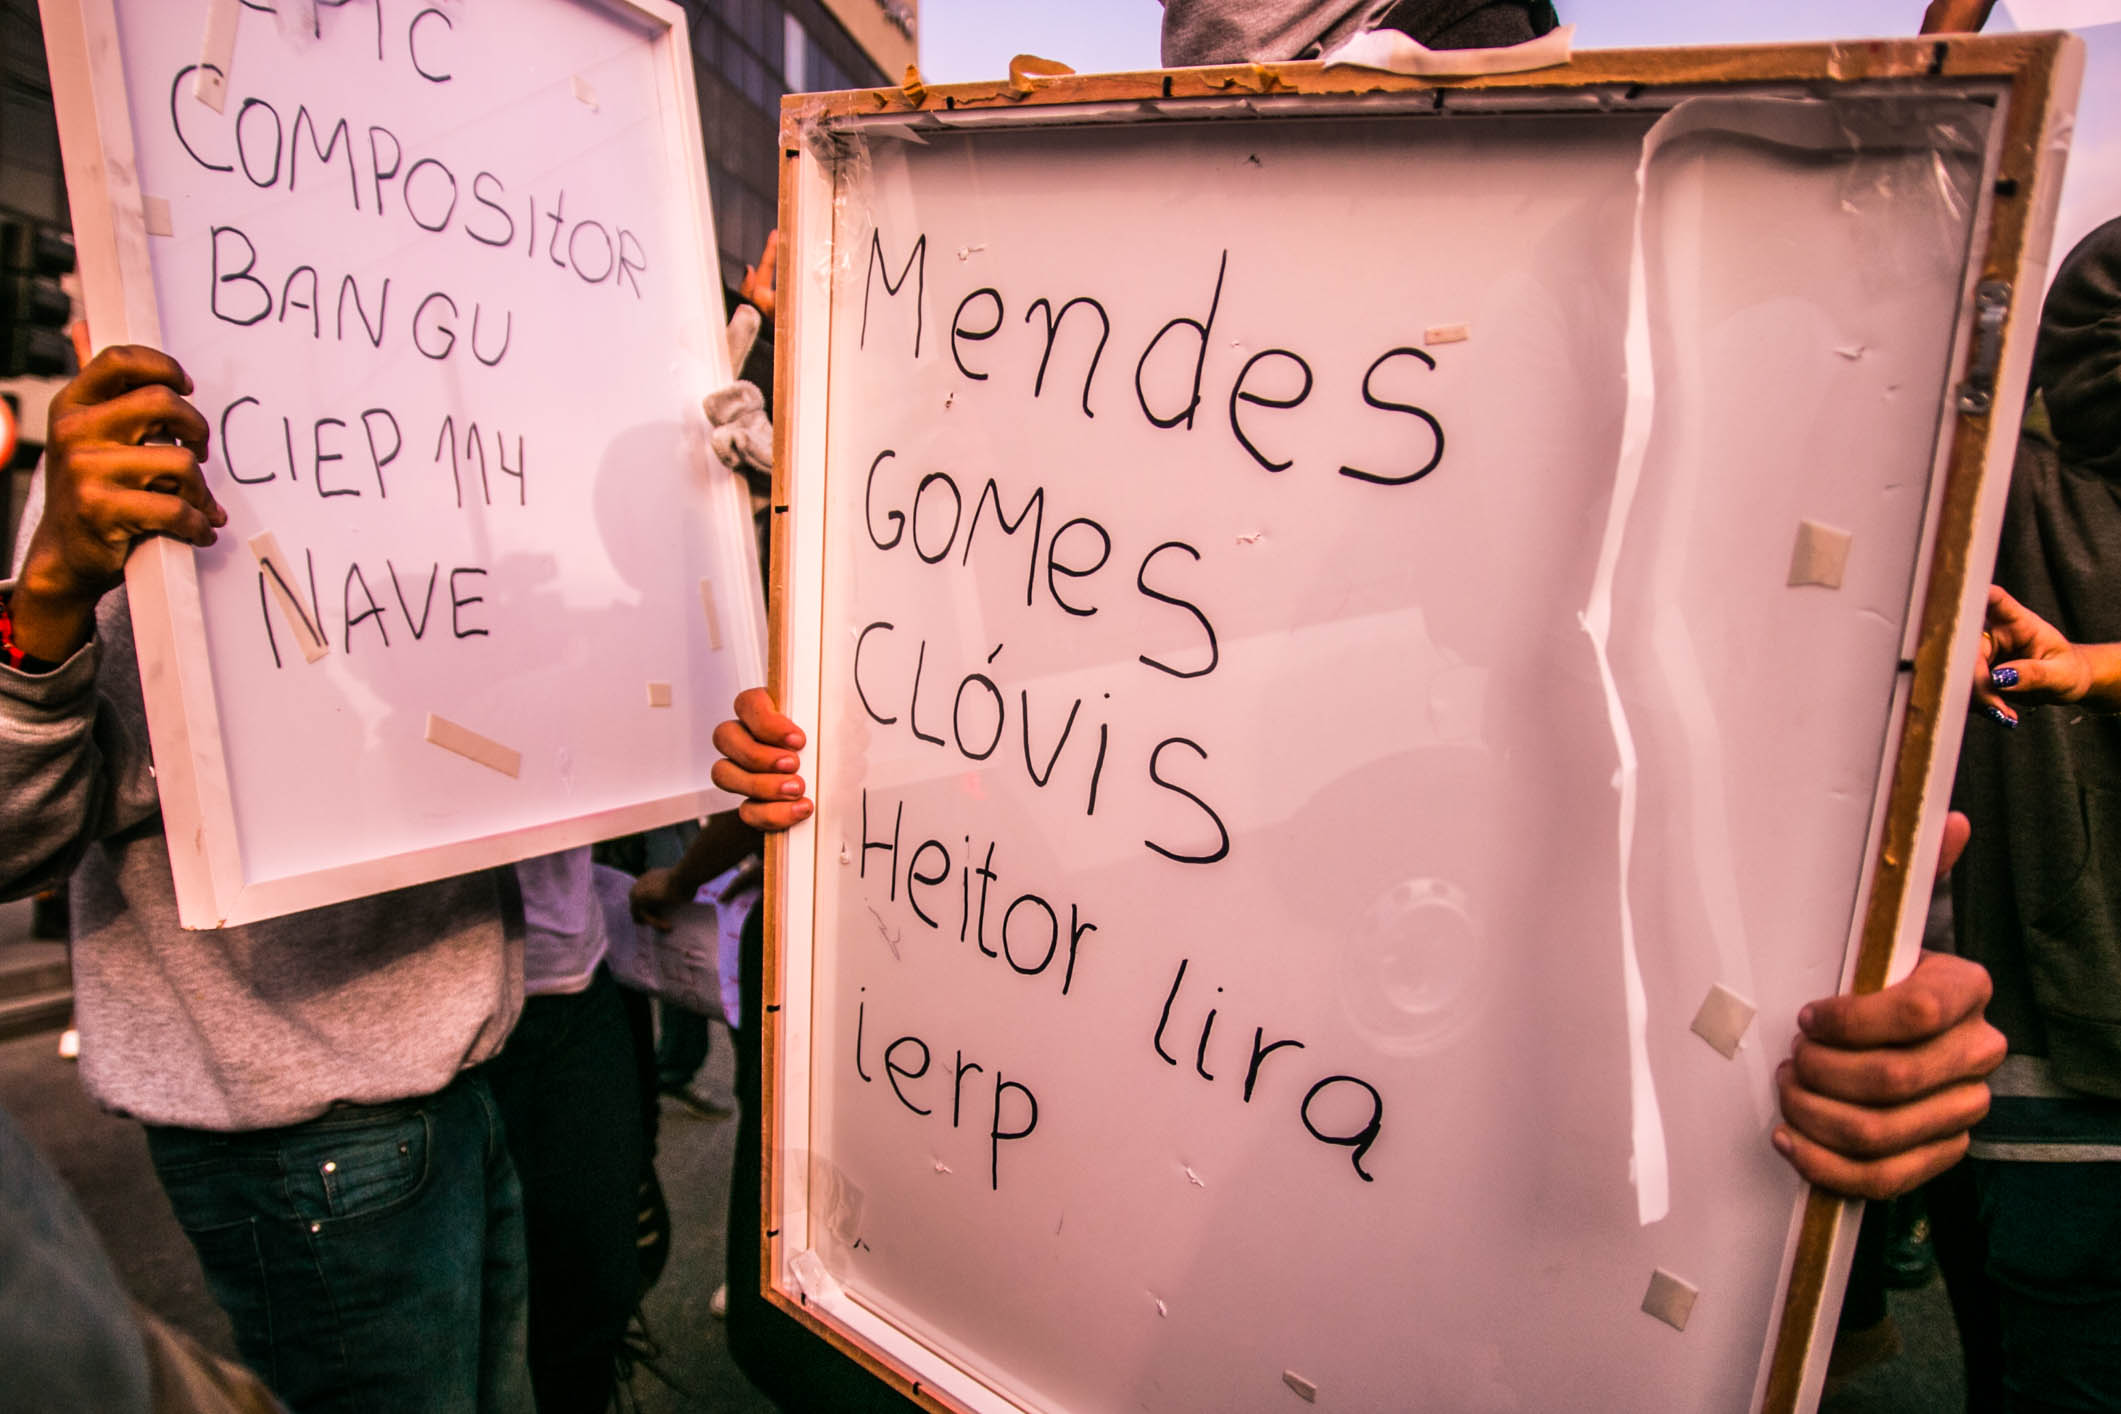 COMPOSITOR
BANGU
CIEP 114
NAVE
Mendes
GOMes
CLÓVIS
Heitor lira
ierp